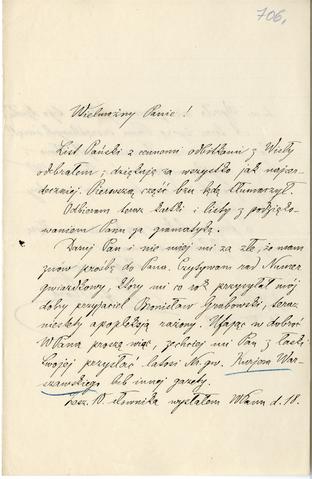 706.
Wielmożny Panie!
List Pański z cennemi odbitkami z Wisły
odebrałem; dziękuję za wszystko jak najser-
deczniej. Pierwszą część będę tłumaczył.
Odbieram teraz kartki i listy z podzięko-
waniem Panu za gramatykę.
Daruj Pan i nie miej mi za złe, że mam
znów prośbę do Pana. Czytywam rad Numer
gwiazdkowy, który mi co rok przysyłał mój
dobry przyjaciel Bronisław Grabowski, teraz
niestety apopleksją rażony. Ufając w dobroć
WPana proszę więc, zechciej mi Pan z łaski
Swojej przysłać latosi Nr. gw. Kurjera War-
szawskiego lub innej gazety.
Zesz. 10. słownika wysłałem WPanu d. 18.